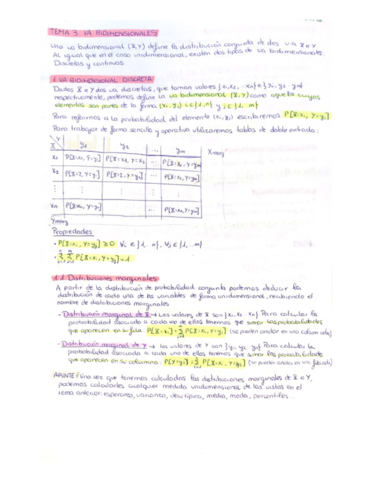 TEMA 3: VA BIDIMENSIONALES
Una va bidimensional (X,Y) define la distribución conjunta de dos v.a X e Y
Al igual que en el caso unidimensional, existen dos tipos de va bidimensionales:
Discretas y continuas.
1. VA BIDIMENSIONAL DISCRETA
Dadas X e Y dos va discretas, que toman valores {x1, x2, ..xn} e {y1, y2, ym}
respectivamente, podemos definir la va bidimensional (X,Y) como aquella cuyos
elementos son pares de la forma (xi, yj) i∈{1..n} y j∈{1..m}
Para referirnos a la probabilidad del elemento (xi, yj) escribiremos P[X=xi, Y=yj]
Para trabajar de forma sencilla y operativa utilizaremos tablas de doble entrada:
X Y y1 y2 ... ym Xmarg
x1 P[X=x1, Y=y1] P[X=x1, Y=y2] ... P[X=x1, Y=ym]
x2 P[X=2, Y=y1] P[X=2, Y=y2] ...
⋮ ⋮ ⋮ ⋮
xn P[X=xn, Y=y1] P[X=xn, Y=ym]
Ymarg
Propiedades
• P[X=xi, Y=yj] ≥ 0 ∀i ∈ {1..n}, ∀j ∈ {1..m}
• ΣΣ P[X=xi, Y=yj] = 1
1.1 Distribuciones marginales
A partir de la distribución de probabilidad conjunta podemos deducir la
distribución de cada una de las variables de forma unidimensional, recibiendo el
nombre de distribuciones marginales
- Distribución marginal de X → Los valores de X son {x1, x2, xn} Para calcular la
probabilidad asociada a cada uno de ellos tenemos que sumar las probabilidades
que aparecen en su fila P[X=xi] = Σ P[X=xi, Y=yj] (se pueden anotar en una columna)
- Distribución marginal de Y → los valores de Y son {y1, y2, ym} Para calcular la
probabilidad asociada a cada uno de ellos tenemos que sumar las probabilidades
que aparecen en su columna P[Y=yj] = Σ P[X=xi, Y=yj] (se pueden anotar en una fila)
APUNTE: Una vez que tenemos calculadas las distribuciones marginales de X e Y,
podemos calcularles cualquier medida unidimensional de las vistas en el
tema anterior: esperanza, varianza, desv típica, media, moda, percentiles